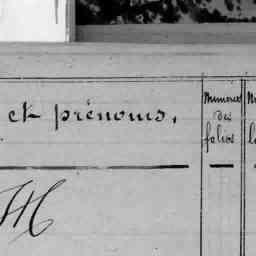 et prénoms,
Numéros
des
folios
H